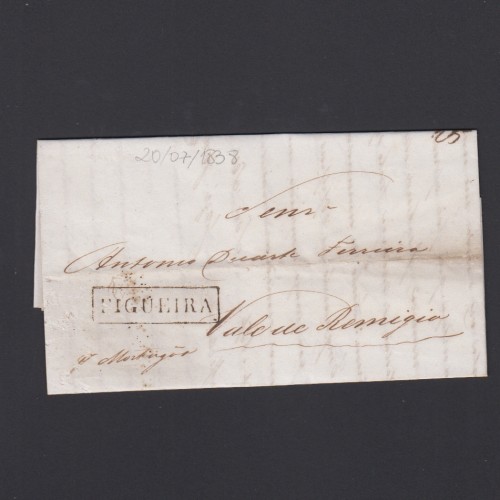 25
20/07/1838
Senr
Antonio Duarte Ferreira
FIGUEIRA
Vale de Remigio
p Mortagoa